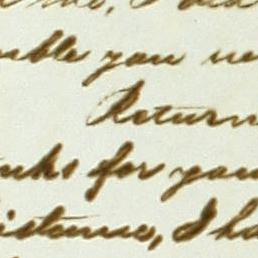 uble you
Return
nks for you
istance, I ha